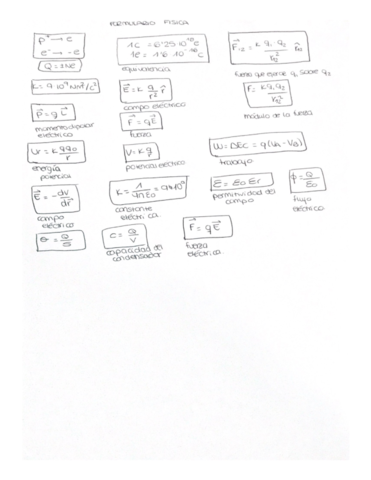 FORMULARIO FISICA
p⁺ → e
e⁻ → -e
Q = ±Ne
1C = 6'25·10¹⁸ e
1e = 1'6·10⁻¹⁹ C
equivalencia
F₁₂ = K q₁ q₂ / r₁₂² r̂₁₂
fuerza que ejerce q₁ sobre q₂
K = 9·10⁹ Nm²/C²
E = K q/r² r̂
campo eléctrico
F = K q₁q₂ / r₁₂²
módulo de la fuerza
p = q L
momento dipolar eléctrico
F = qE
fuerza
U = K q q₀ / r
energía potencial
V = K q
potencial eléctrico
W = -ΔEc = q(Va - Vb)
trabajo
E = - dv / dr
campo eléctrico
K = 1 / 4πε₀ = 9·10⁹
constante eléctrica
ε = ε₀ εr
permitividad del campo
ϕ = Q / ε₀
flujo eléctrico
C = Q / V
capacidad del condensador
F = qE
fuerza eléctrica